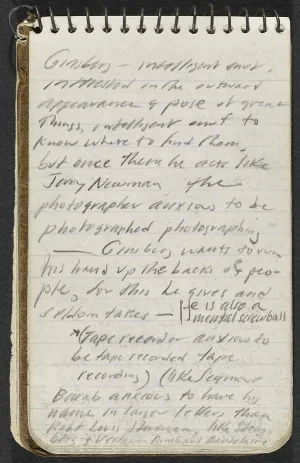 Ginsberg – intelligent enuf,
interested in the outward
appearance & pose of great
things, intelligent enuf to
know where to find them,
but once there he acts like
Jerry Newman the
photographer anxious to be
photographed photographing
— Ginsberg wants to run
his hand up the backs of peo-
ple, for this he gives and
seldom takes — He is also a
mental screwball
*(Tape recorder anxious to
be tape recorded tape
recording) (like Seymour
Barab anxious to have his
name in larger letters than
Robt Louis Stevenson, like Steig-
& Verlaine Rimbaud Baudelaire